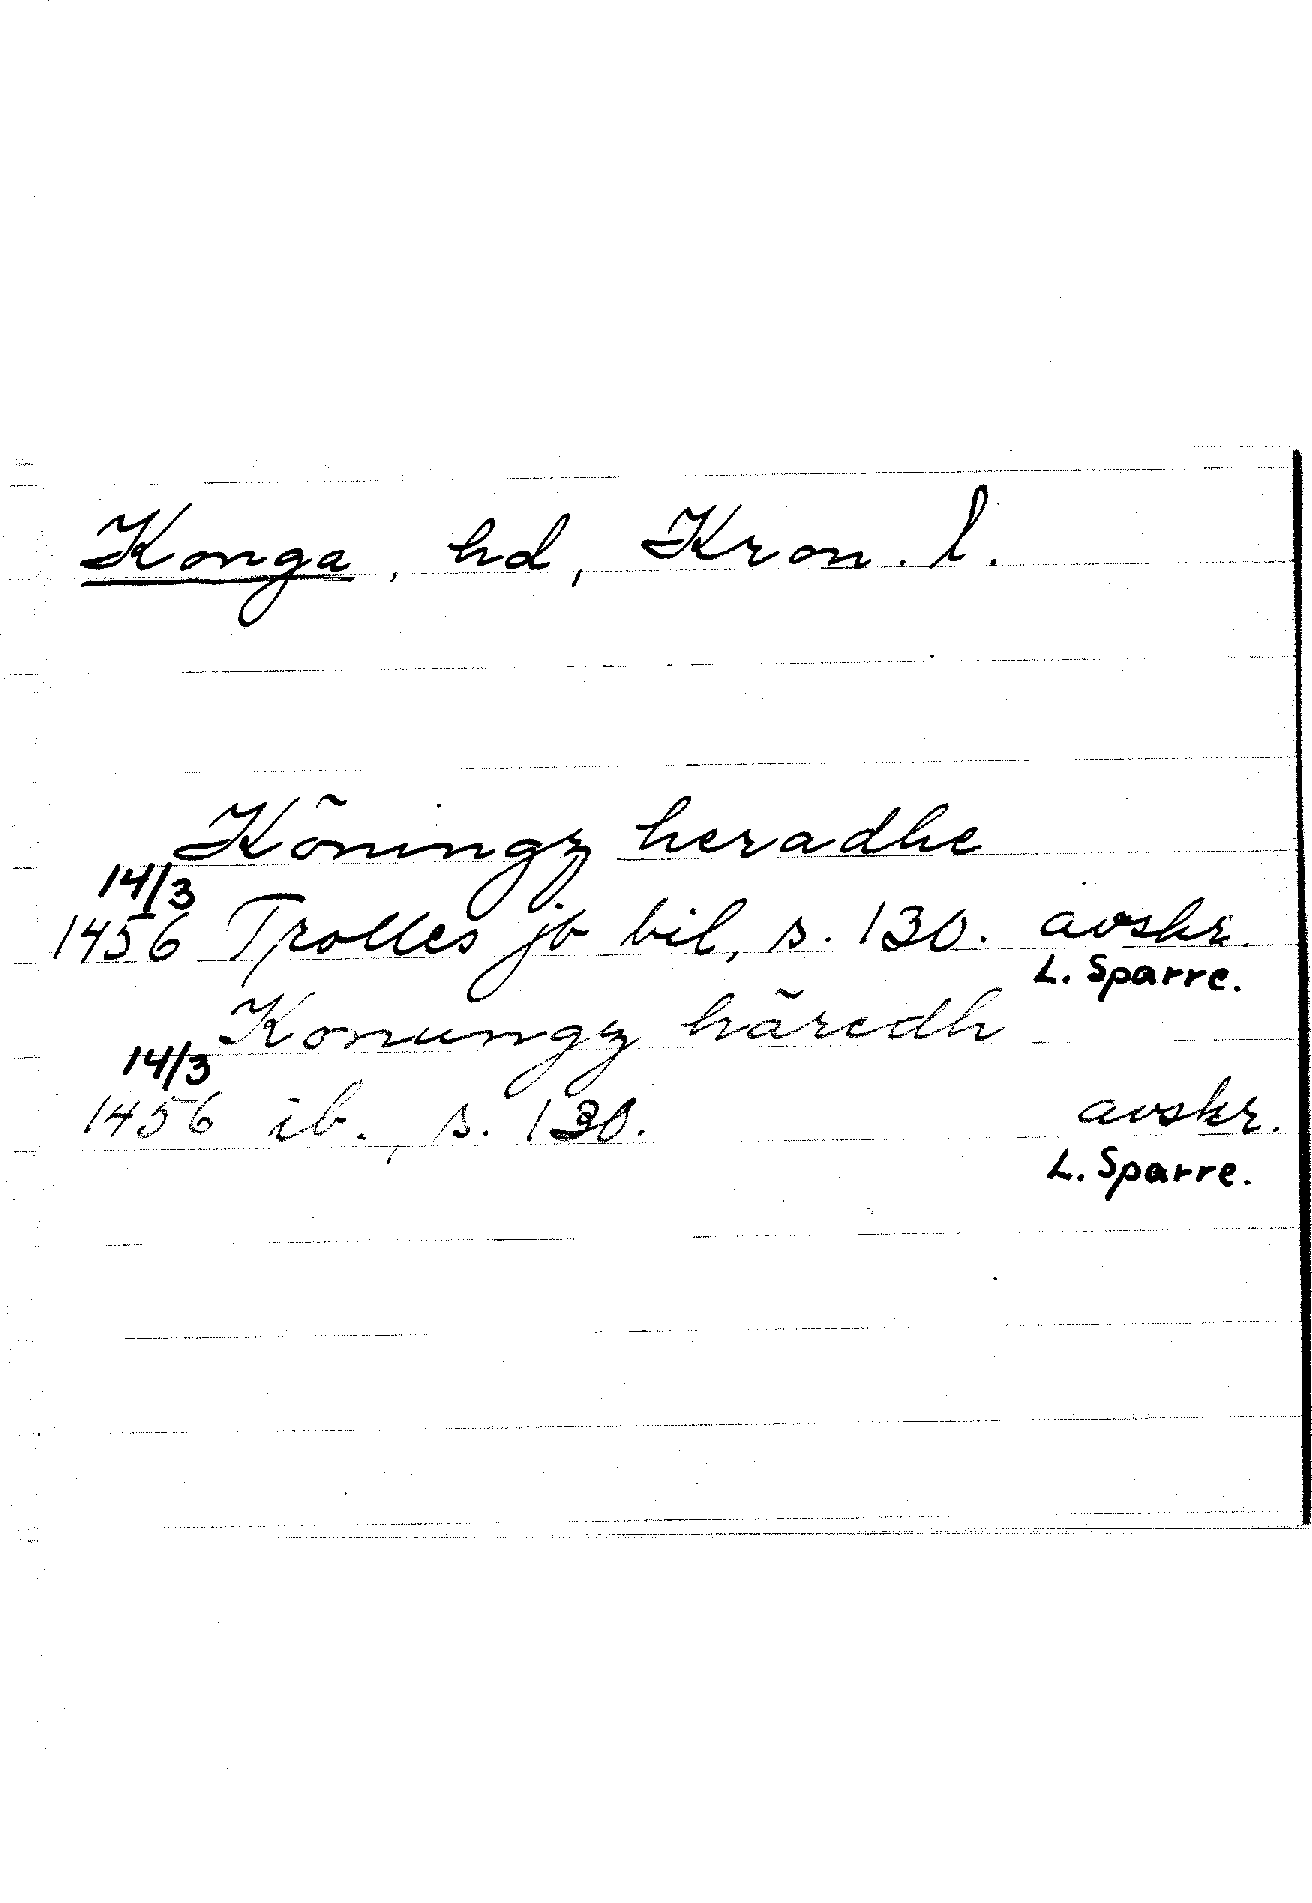 Konga, hd, Kron. l.
Kõningz heradhe
14/3
1456 Trolles jb bil, s. 130. avskr.
L. Sparre.
Konungz häredh
14/3
1456 ib., s. 130. avskr.
L. Sparre.